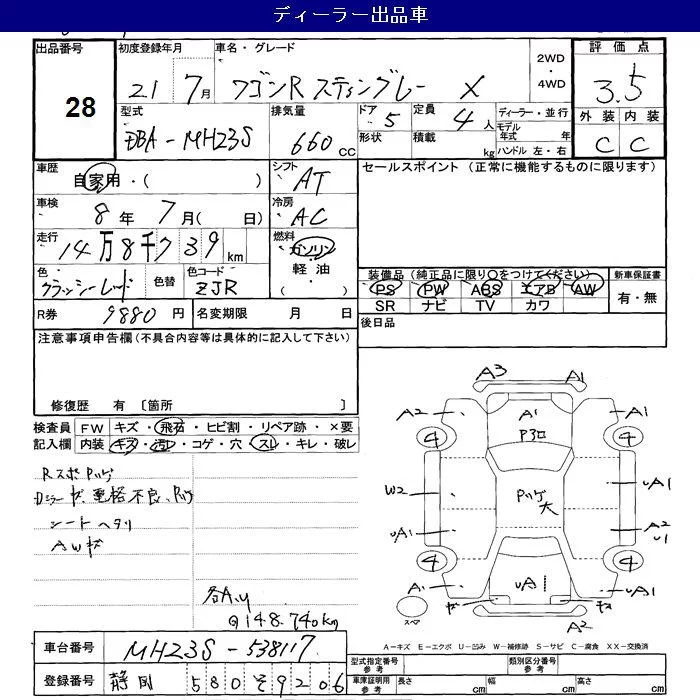 ディーラー出品車
出品番号 初度登録年月 車名・グレード 2WD・4WD 評価点
28 21 7月 ワゴンR スティングレー X 3.5
型式 排気量 ドア 5 定員 4人 ディーラー・並行 外装 内装
DBA-MH23S 660cc 形状 積載 kg モデル年式 年 ハンドル 左・右 C C
車歴 自家用・( ) シフト AT セールスポイント (正常に機能するものに限ります)
車検 8年 7月( 日) 冷房 AC
走行 14万8千739km 燃料 ガソリン 軽油 ( ・ )
色 クラッシーレッド 色替 色コード ZJR 装備品(純正品に限り○をつけてください) 新車保証書
PS PW ABS エアB AW 有・無
SR ナビ TV カワ
R券 9880円 名変期限 月 日 後日品
注意事項申告欄(不具合内容等は具体的に記入して下さい)
修復歴 有 〔箇所 〕
検査員 FW キズ・飛石・ヒビ割・リペア跡・×要
記入欄 内装 キズ・汚レ・コゲ・穴・スレ・キレ・破レ
A3 A1
A2 A1 A1
4 P3ロ 4
W2 Pハゲ大 UA1
UA1 A2 U1
4 4
A1 UA1 UA1
A2
スペア
Rスポ Pハゲ
シートヘタリ
AWキズ
Q148.740km
A=キズ E=エクボ U=凹み W=補修跡 S=サビ C=腐食 XX=交換済
車台番号 MH23S-538117
登録番号 静岡 580 そ 9206
型式指定番号 参考 類別区分番号 参考
車庫証明用 参考 長さ cm 幅 cm 高さ cm